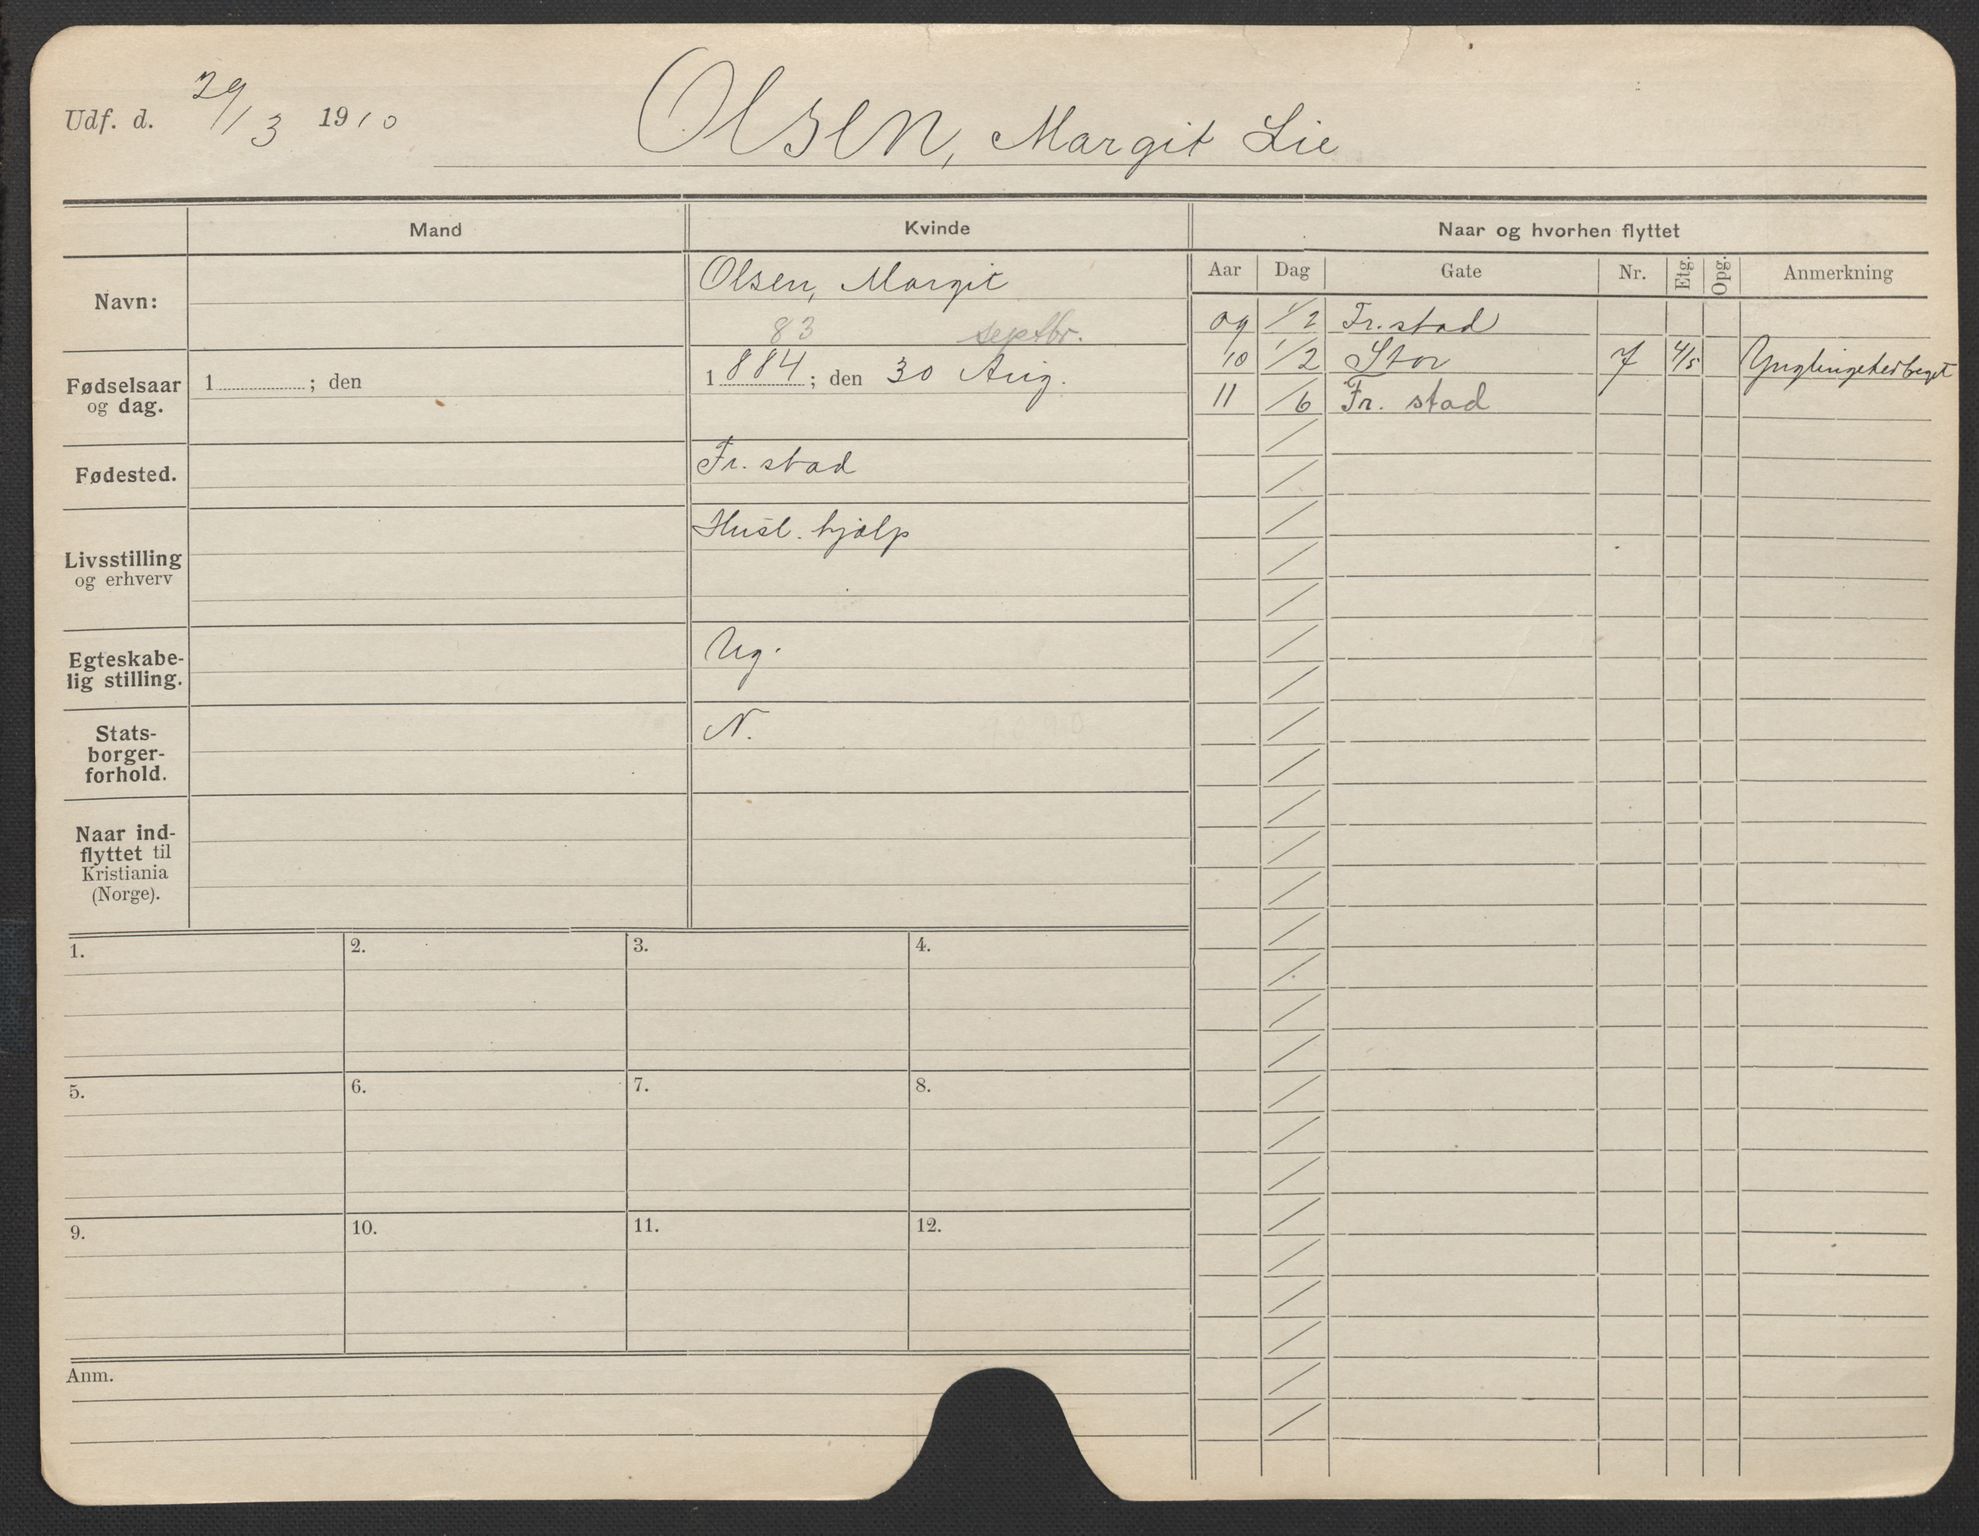 Udf. d. 29/3 1910 Olsen, Margit Lie
Mand Kvinde Naar og hvorhen flyttet
Aar Dag Gate Nr. Etg. Opg. Anmerkning
Navn: Olsen, Margit
83 septbr.
Fødselsaar og dag. 1 ; den 1 884 ; den 30 Aug.
Fødested. Fr. stad
Livsstilling og erhverv Husl. hjælp
Egteskabe-
lig stilling. Ug.
Stats-
borger-
forhold. N.
Naar ind-
flyttet til
Kristiania
(Norge).
09 1/2 Fr. stad
10 1/2 Stor 7 4/5
11 /6 Fr. stad
1. 2. 3. 4.
5. 6. 7. 8.
9. 10. 11. 12.
Anm.